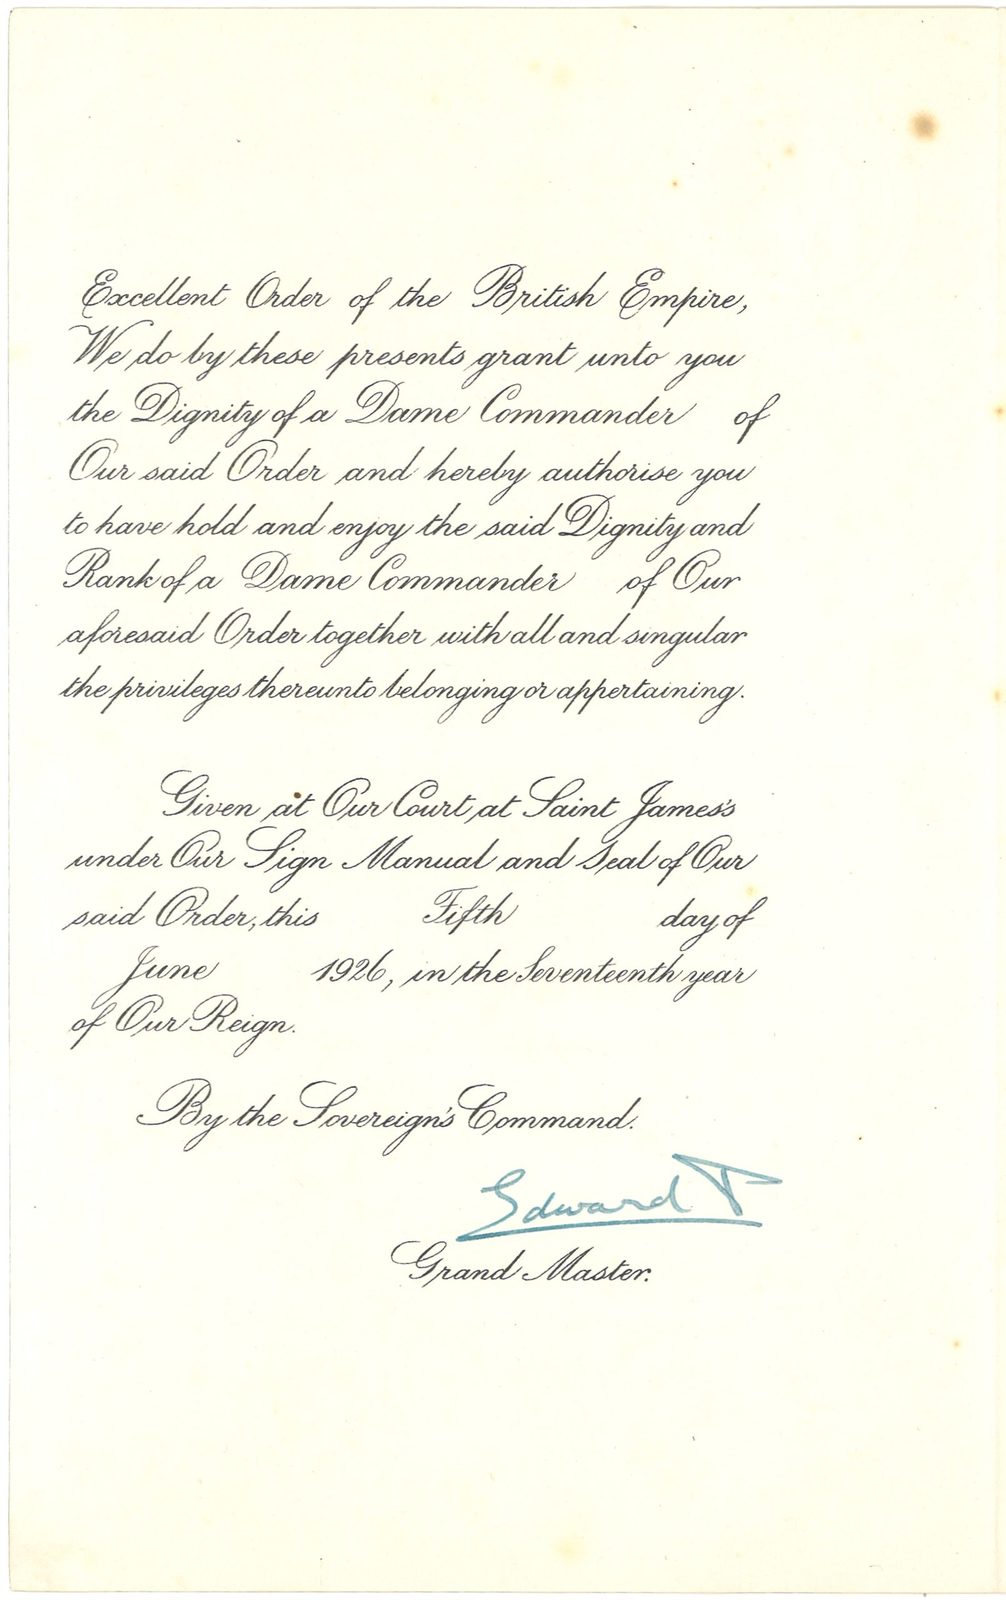 Excellent Order of the British Empire,
We do by these presents grant unto you
the Dignity of a Dame Commander of
Our said Order and hereby authorise you
to have hold and enjoy the said Dignity and
Rank of a Dame Commander of Our
aforesaid Order together with all and singular
the privileges thereunto belonging or appertaining.
Given at Our Court at Saint James's
under Our Sign Manual and Seal of Our
said Order, this Fifth day of
June 1926, in the Seventeenth year
of Our Reign.
By the Sovereign's Command.
Edward P
Grand Master.